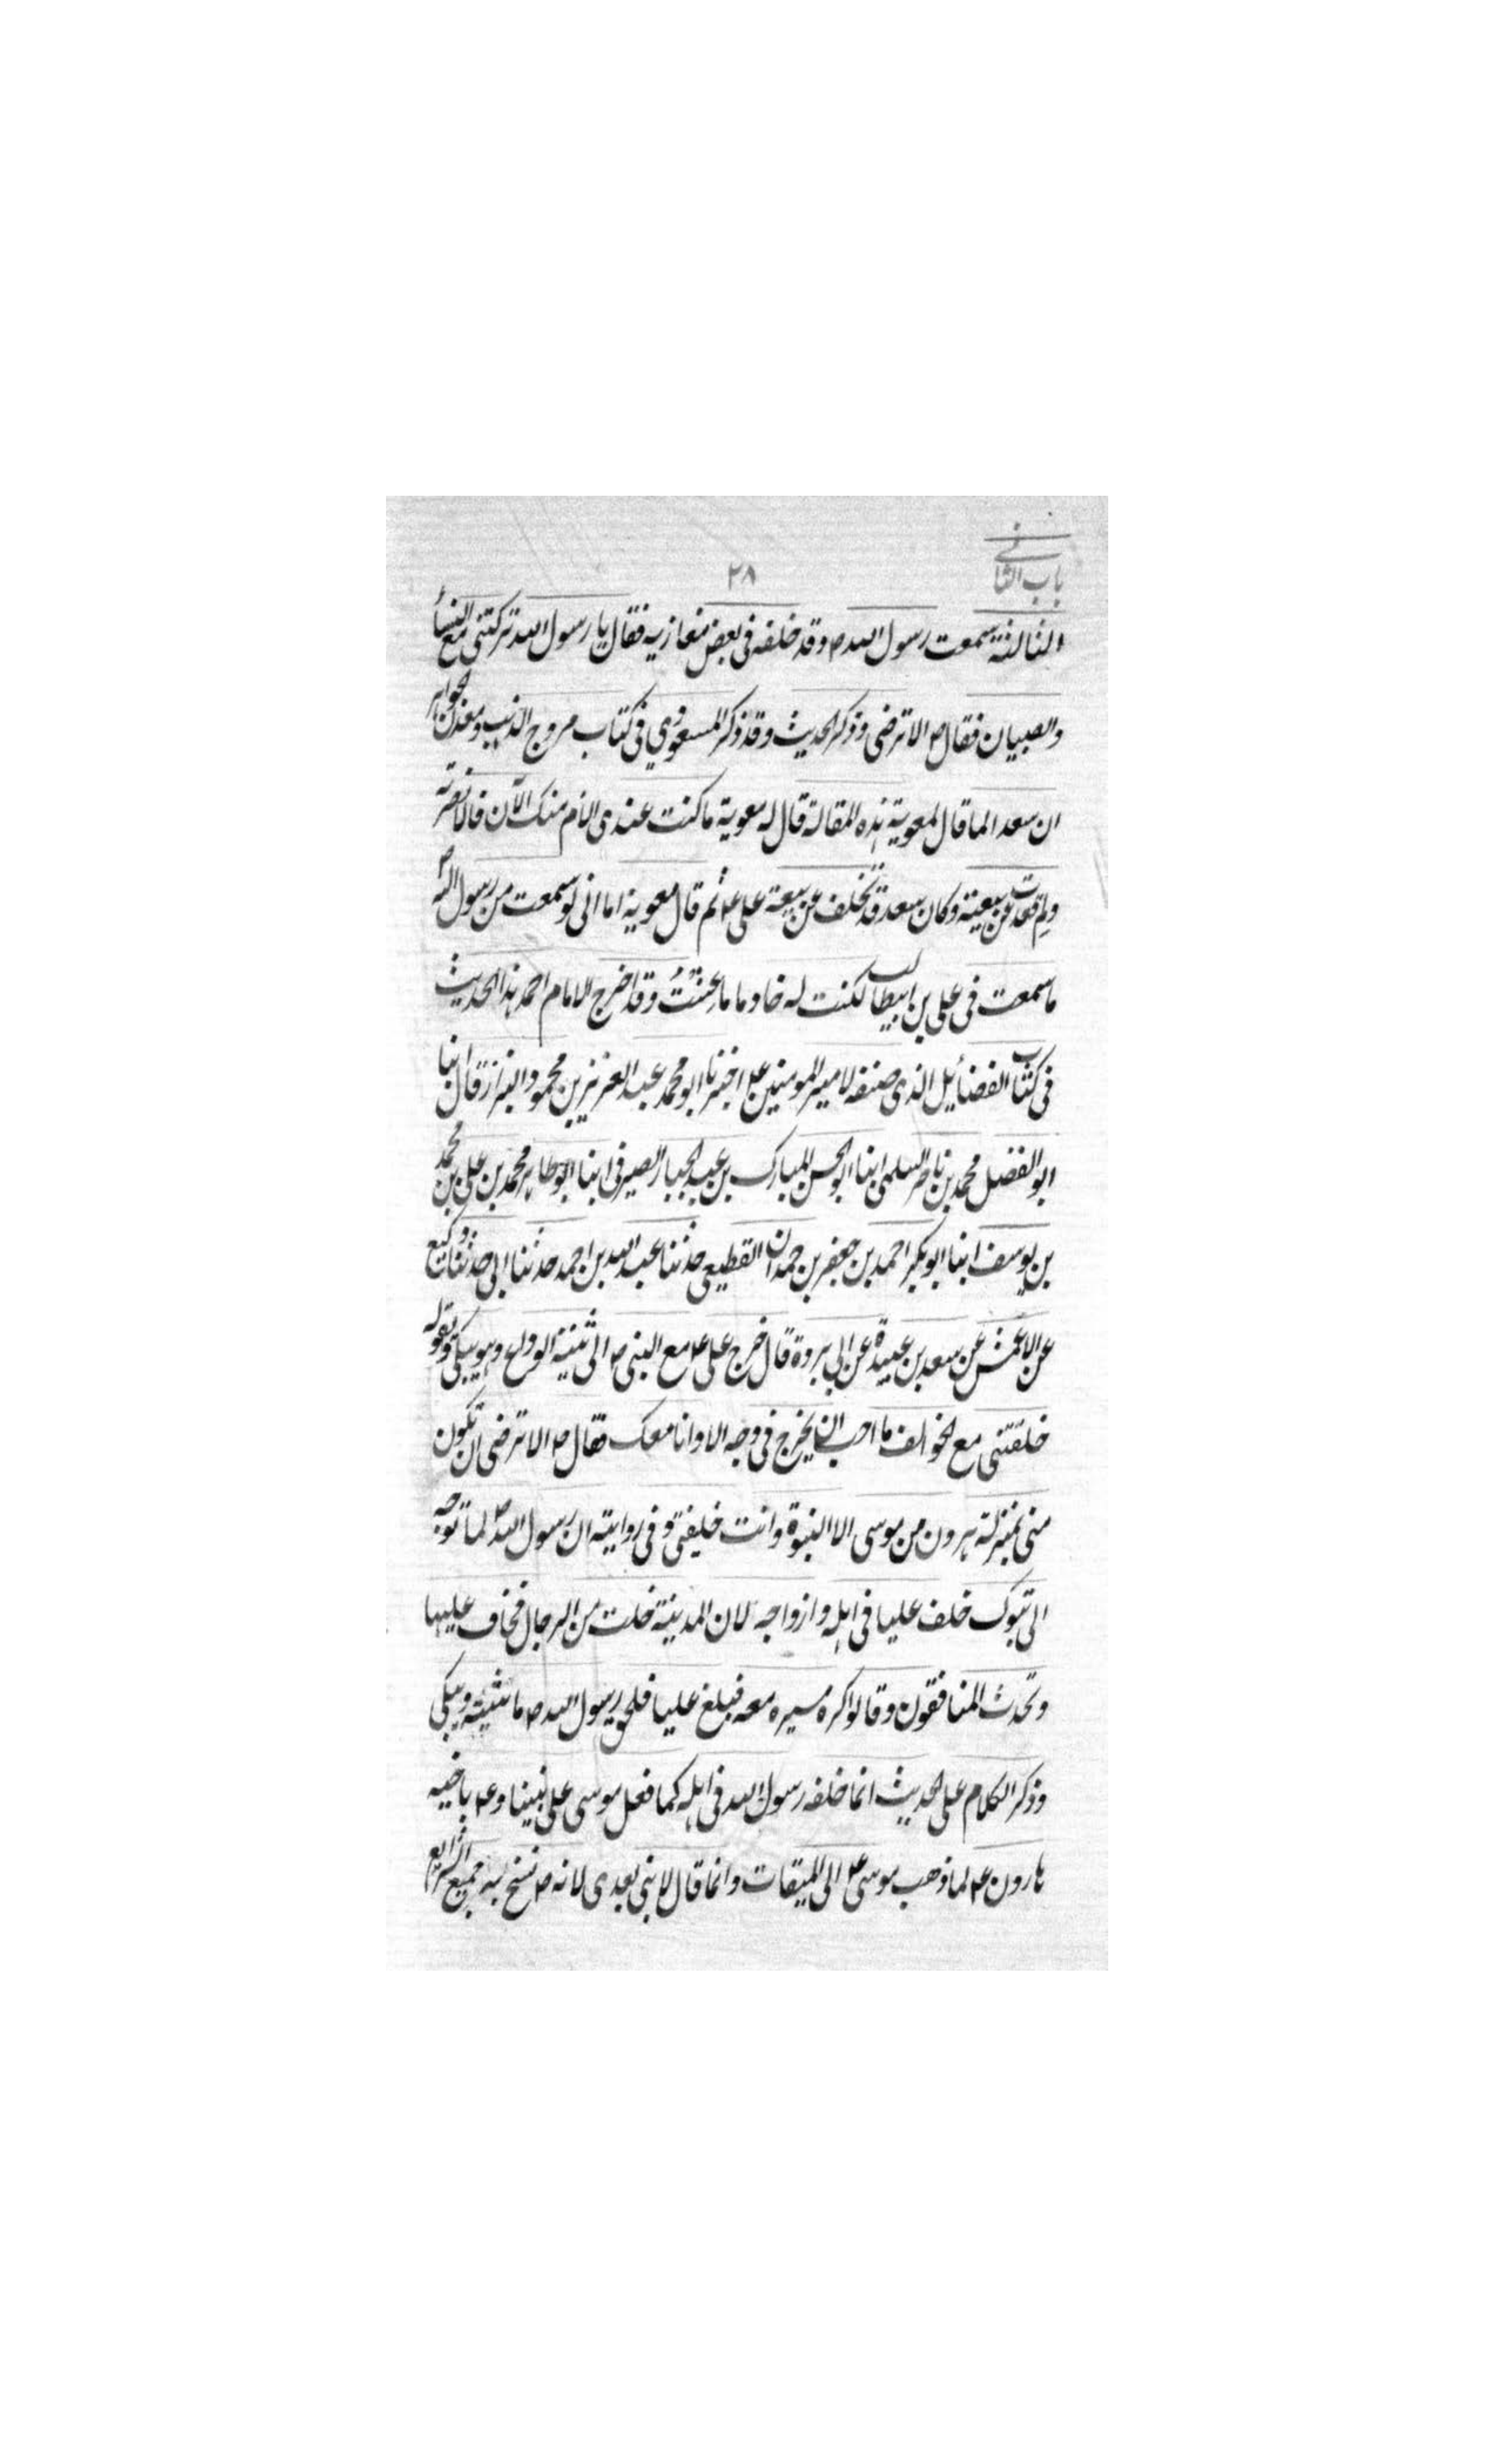 باب الثاني
٢٨
الثالثة سمعت رسول الله ص وقد خلفه فى بعض مغازيه فقال يا رسول الله تركتنى مع النسأ
والصبيان فقال ص الا ترضى وذكر الحديث وقد ذكر المسعودي فى كتاب مروج الذهب ومعدن الجواهر
ان سعدا لما قال لمعوية هذه المقالة قال له معوية ما كنت عندى الام منك الآن فالا نصرته
ولم قعدت عن بيعته وكان سعد قد تخلف عن بيعة على ع ثم قال معوية اما انى لو سمعت من رسول الله ص
ما سمعت فى على بن ابيطالب لكنت له خادما ما عشت وقد اخرج الامام احمد هذا الحديث
فى كتاب الفضائل الذى صنفه لامير المومنين ع اخبرنا ابو محمد عبد العزيز بن محمود البزاز قال ابنا
ابو الفضل محمد بن ناصر السلمى ابنا ابو الحسن المبارك بن عبد الجبار الصيرفى ابنا ابو طاهر محمد بن على بن محمد
بن يوسف ابنا ابو بكر احمد بن جعفر بن حمدان القطيعى حدثنا عبد الله بن احمد حدثنا ابى حدثنا وكيع
عن الاعمش عن سعد بن عبيدة عن ابى بردة قال خرج على ع مع النبى ص الى ثنية الوداع وهو يبكى ويقول
خلفتنى مع الخوالف ما احب ان تخرج فى وجه الا وانا معك فقال ص الا ترضى ان تكون
منى بمنزلة هرون من موسى الا النبوة وانت خليفتى وفى رواية ان رسول الله ص لما توجه
الى تبوك خلف عليا فى اهله وازواجه لان المدينة خلت من الرجال فخاف عليها
وتحدث المنافقون وقالوا كره مسيره معه فبلغ عليا فلحق رسول الله ص ويبكى
وذكر الكلام على الحديث انما خلفه رسول الله فى اهله كما فعل موسى على نبينا وع باخيه
هارون ع لما ذهب موسى ع الى الميقات وانما قال لا نبى بعدى لانه ص نسخ به جميع الشرايع